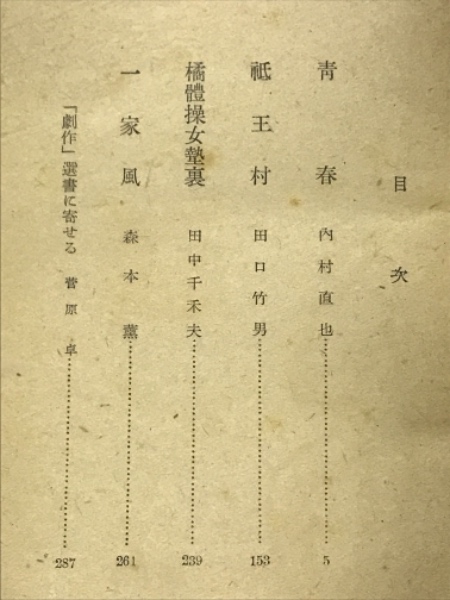 目次
靑春 內村直也 5
祇王村 田口竹男 153
橘體操女塾裏 田中千禾夫 239
一家風 森本薰 261
「劇作」選書に寄せる 菅原卓 287